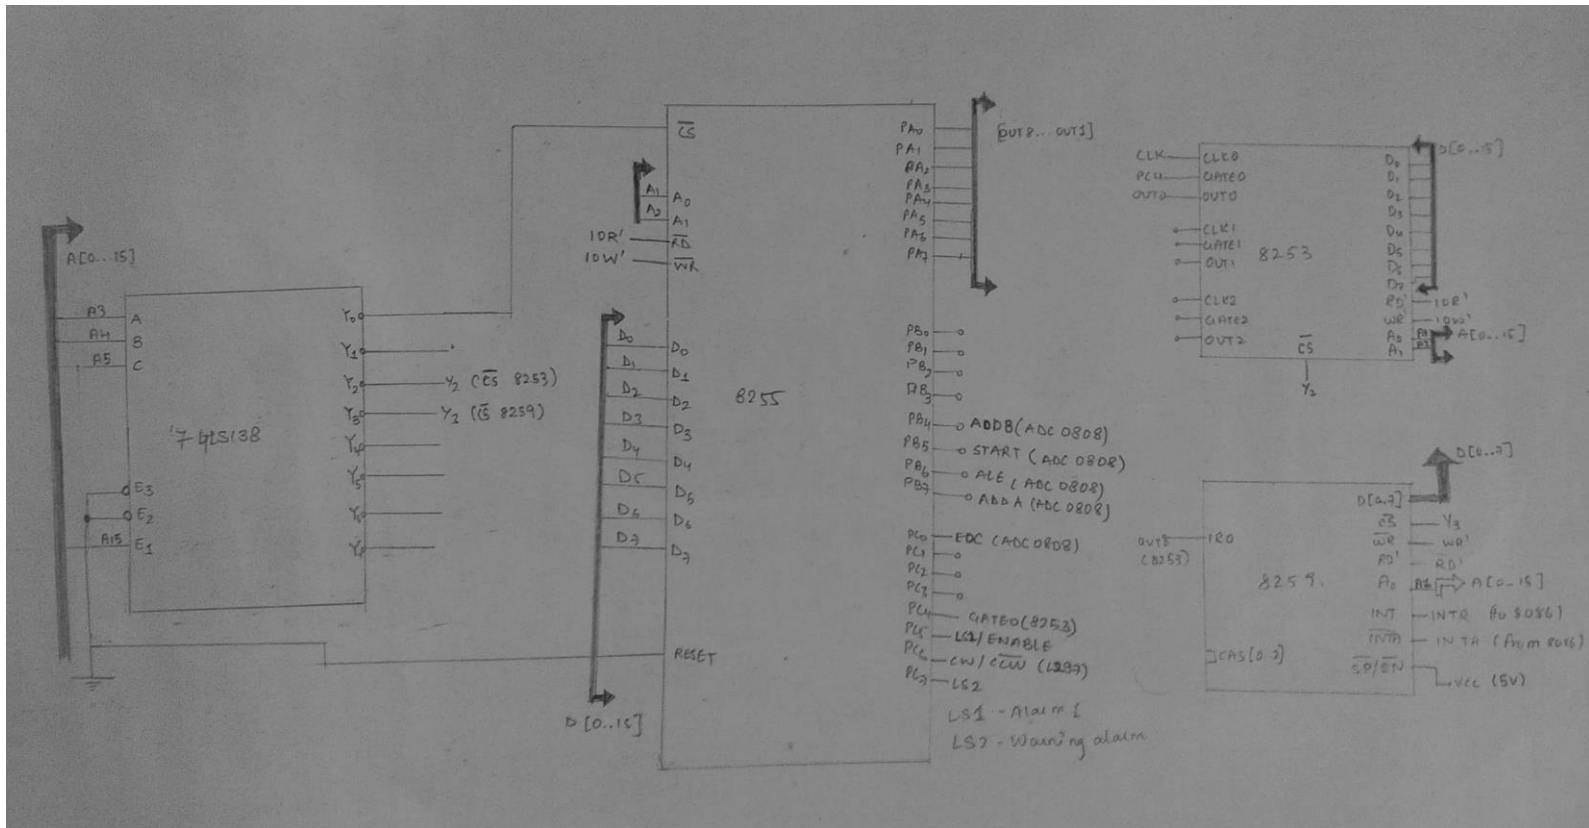 A[0..15]
A3
A4
A5
A15
A
B
C
'74LS138
E3
E2
E1
Y0
Y1
Y2
Y3
Y4
Y5
Y6
Y2 (CS 8253)
Y3 (CS 8259)
CS
A1
A2
A0
A1
IOR'
IOW'
RD
WR
D0
D1
D2
D3
D4
D5
D6
D7
D0
D1
D2
D3
D4
D5
D6
D7
RESET
D[0..15]
8255
PA0
PA1
PA2
PA3
PA4
PA5
PA6
PA7
[OUT8... OUT1]
PB0
PB1
PB2
PB3
PB4 ADDB(ADC 0808)
PB5 START (ADC 0808)
PB6 ALE (ADC 0808)
PB7 ADDA (ADC 0808)
PC0 EOC (ADC0808)
PC1
PC2
PC3
PC4 GATE0(8253)
PC5 LS1/ENABLE
PC6 CW/CCW (L297)
PC7 LS2
LS1 - Alarm 1
LS2 - Warning alarm
CLK CLK0
PC4 GATE0
OUT0 OUT0
CLK1
GATE1
OUT1
CLK2
GATE2
OUT2
8253
D0
D1
D2
D3
D4
D5
D6
D7
D[0..15]
RD' IOR'
WR' IOW'
A0
A1
A[0..15]
CS
D[0..7]
D[0,7]
CS Y3
WR WR'
RD' RD'
A0 A1 A[0..15]
INT INTR (to 8086)
INTA INTA (from 8086)
SP/EN VCC (5V)
IR0
(8253)
8259.
CAS[0..2]